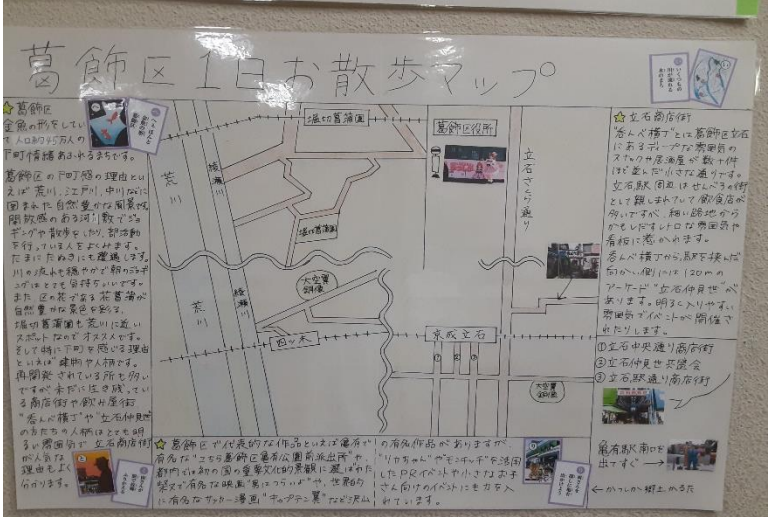 葛飾区1日お散歩マップ
葛飾区
金魚の形をしてい
て人口約45万人の
下町情緒あふれるまちです。
葛飾区の下町感の理由とい
えば荒川、江戸川、中川などに
囲まれた自然豊かな風景。
開放感のある河川敷でジョ
ギングや散歩をしたり、部活動
を行っている人をよくみます。
たまにたぬきにも遭遇します。
川の流れも穏やかで朝のジョギ
ングはとても気持ちいいです。
また、区の花である花菖蒲が
自然豊かな景色を彩る、
堀切菖蒲園も荒川に近い
スポットなのでオススメです。
そして特に下町を感じる理由
といえば建物や人柄です。
再開発されている所も多い
ですが未だに活き残っている
商店街や飲み屋街
"呑んべ横丁"や"立石仲見世"
の方たちの人柄はとても明
るい雰囲気で立石商店街
が人気な
理由もよく
分かります。
堀切菖蒲園
葛飾区役所
荒川
綾瀬川
立石さくら通り
堀切菖蒲園
大空翼
銅像
荒川
綾瀬川
四ツ木
京成立石
① ② ③
大空翼
銅像
立石商店街
"呑んべ横丁"とは葛飾区立石
にあるディープな雰囲気の
スナックや居酒屋が数十件
ほど並んだ小さな通りです。
立石駅周辺はせんべろの街
として親しまれていて飲食店が
多いですが、細い路地から
かもしだすレトロな雰囲気や
看板に惹かれます。
呑んべ横丁から、駅を挟んだ
向かい側には120mの
アーケード"立石仲見世"が
あります。明るく入りやすい
雰囲気でイベントが開催さ
れたりします。
①立石中央通り商店街
②立石仲見世共盛会
③立石駅通り商店街
亀有駅南口を
出てすぐ→
←かつしか郷土かるた
葛飾区で代表的な作品といえば亀有で
有名な"こちら葛飾区亀有公園前派出所"や、
都内では初の国の重要文化的景観に選ばれた
柴又で有名な映画"男はつらいよ"や、世界的
に有名なサッカー漫画"キャプテン翼"など沢山
の有名作品がありますが、
"リカちゃん"や"モンチッチ"を活用
したPRイベントや小さなお子
さん向けのイベントにも力を入
れています。